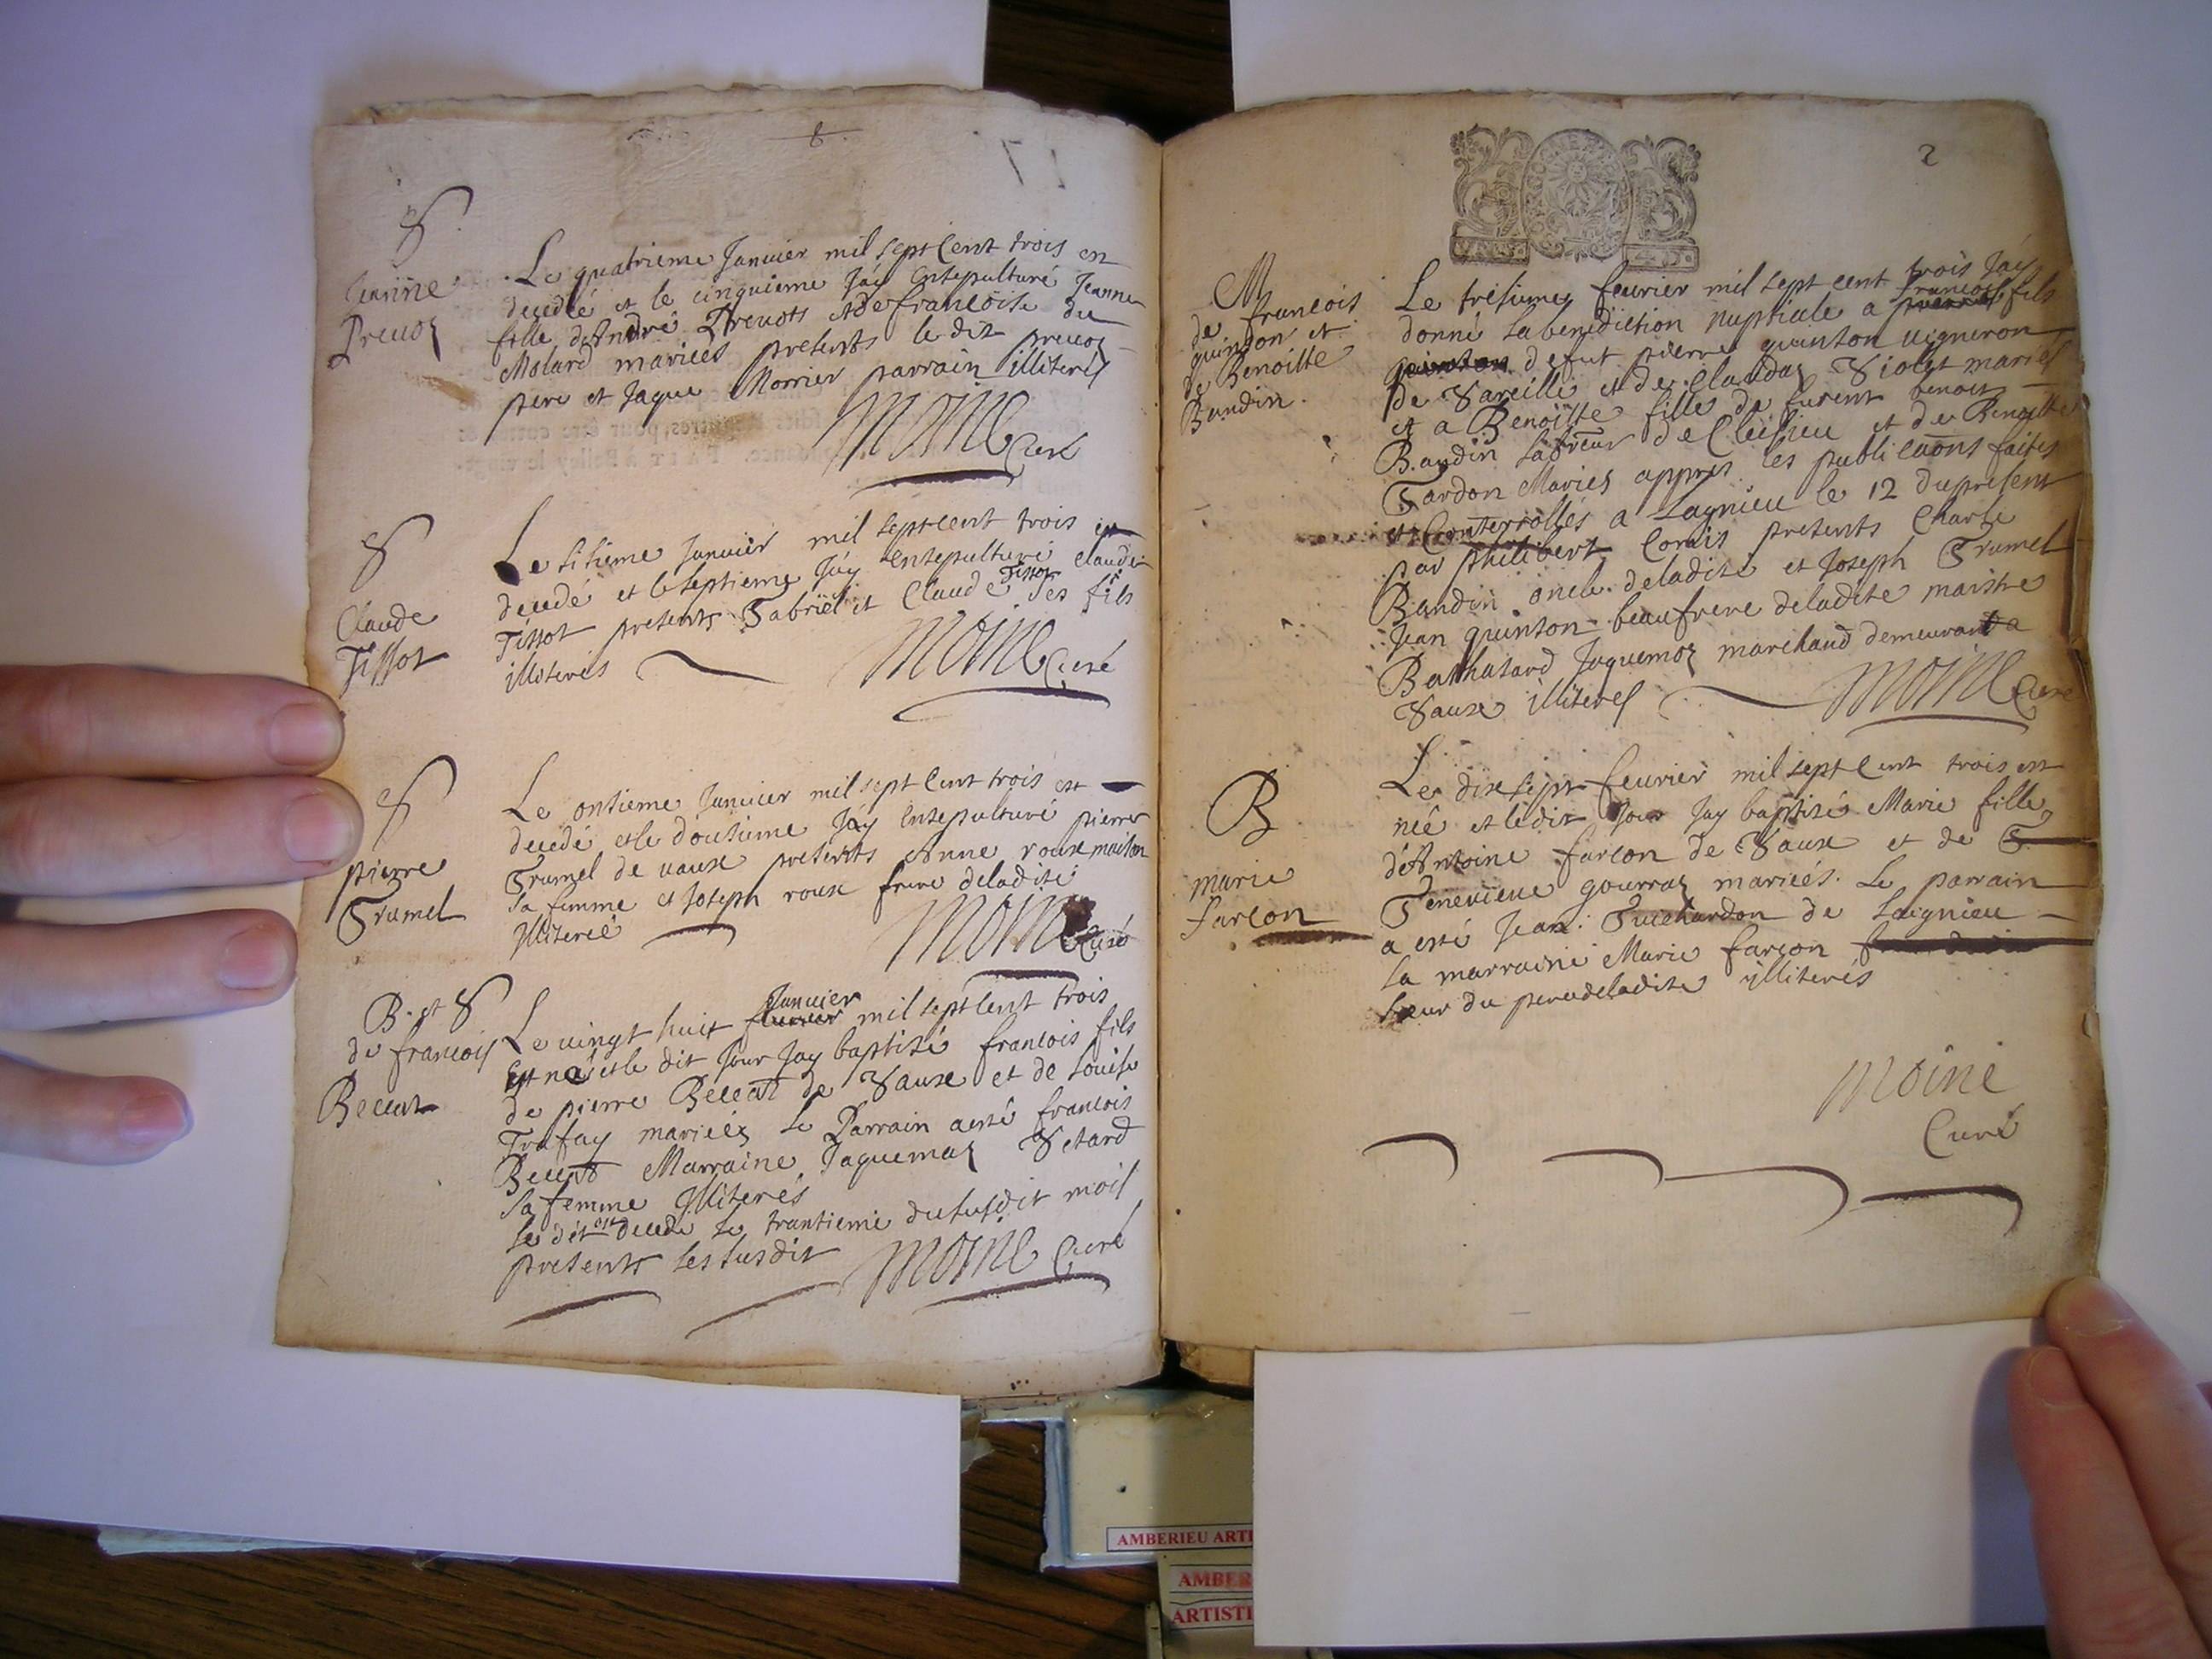 S
Jeanne
Preuoz
Le quatrieme Januier mil sept cent trois est
decedée et le cinquieme Jáy ensepulturé Jeanne
fille d'André Preuots et de francoise du
Molard mariees presents le dit preuoz
pere et Jaque Morrier parrain illiterés
Moine Curé
S
Claude
Tissot
Le sisieme Januier mil sept cent trois est
decedé et le septieme Jáy ensepulturé claude
Tissot presents Gabriel et Claude Tissot ses fils
illiterés
Moine Curé
S
pierre
Trumel
Le onsieme Januier mil sept cent trois est
decedé et le dousieme Jáy ensepulturé pierre
Trumel de uaux presents Anne roux maison
sa femme et Joseph roux frere deladite
Jlliteré
Moine Curé
B. et S
de francois
Becent
Le uingt huit Januier mil sept cent trois
est né et le dit Jour Jay baptisé francois fils
de pierre Becent de Vaux et de Louise
Trafay mariéz Le Parrain aesté francois
Becent Marraine Jaquemaz Vetard
sa femme Jlliterés
le dit est decede le trantieme du susdit mois
presents les susdit
Moine Curé
2
BOURGOGNE
M
de francois
quinson et
de Benoitte
Bandin.
Le tresieme feurier mil sept cent trois Jáy
donné la benediction nuptiale a francois fils
de fut pierre quinson uigneron
de Vareille et de Claudaz Violet mariés
et a Benoitte fille de furent benoit
Bandin laboreur de Cleisieu et de Benoitte
Tardon Mariés appres les publicaons faites
et Conterrollés a Lagnieu le 12 du present
par philibert Corais presents Charle
Bandin oncle deladite et Joseph Trumel
Jean quinson beaufrere deladite maistre
Balthasard Jaquemoz marchand demeurant a
Vaux illiterés
Moine Curé
B
marie
farcon
Le dix sept feurier mil sept cent trois est
neé et ledit Jour Jay baptisé Marie fille
d'Antoine farcon de Vaux et de
Geneuieue gourraz mariés. Le parrain
a esté Jean Guichardon de Laignieu
la marraine Marie farcon
soeur du pere deladite illiterés
Moine
Curé
AMBERIEU ARTI
AMBER
ARTISTI